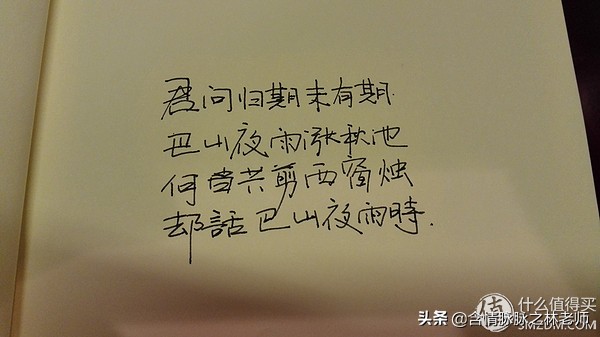 君问归期未有期
巴山夜雨漲秋池
何當共剪西窗烛
却話巴山夜雨時.
值 什么值得买
SMZDM.COM
头条 @含情脉脉之林老师